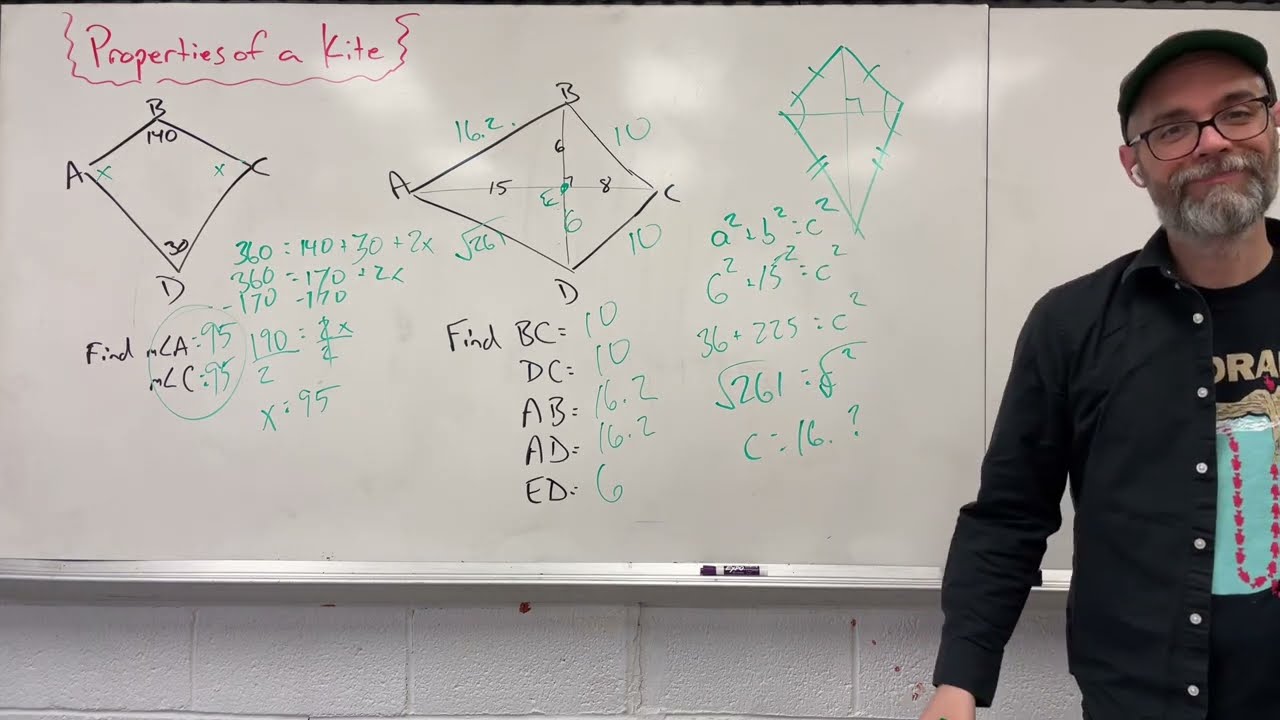 Properties of a Kite
B
140
A x
x C
30
D
360 = 140 + 30 + 2x
360 = 170 + 2x
-170 -170
190 = 2x
2 2
x = 95
Find m∠A = 95
m∠C = 95
B
16.2
10
6
A
15
8
C
E
6
√261
10
D
Find BC = 10
DC = 10
AB = 16.2
AD = 16.2
ED = 6
a² + b² = c²
6² + 15² = c²
36 + 225 = c²
√261 = √c²
c = 16.?
ORA